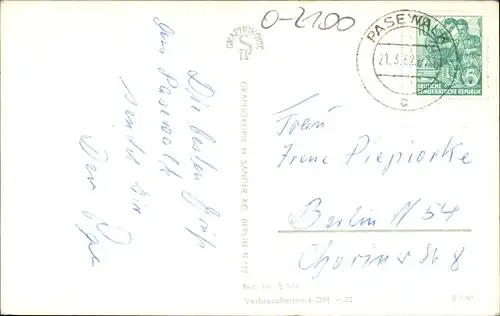 O-2100
GRAPHOKOPIE
PASEWALK
21. 3. 62
c
DEUTSCHE
DEMOKRATISCHE REPUBLIK
5
Die besten Grüße
aus Pasewalk
sendet Dir
Der
GRAPHOKOPIE H. SANDER KG, BERLIN N 113
Frau
Irene Piepiorke
Berlin N 54
Choriner Str. 8
Best. Nr. E
Verbraucherpreis DM -,22